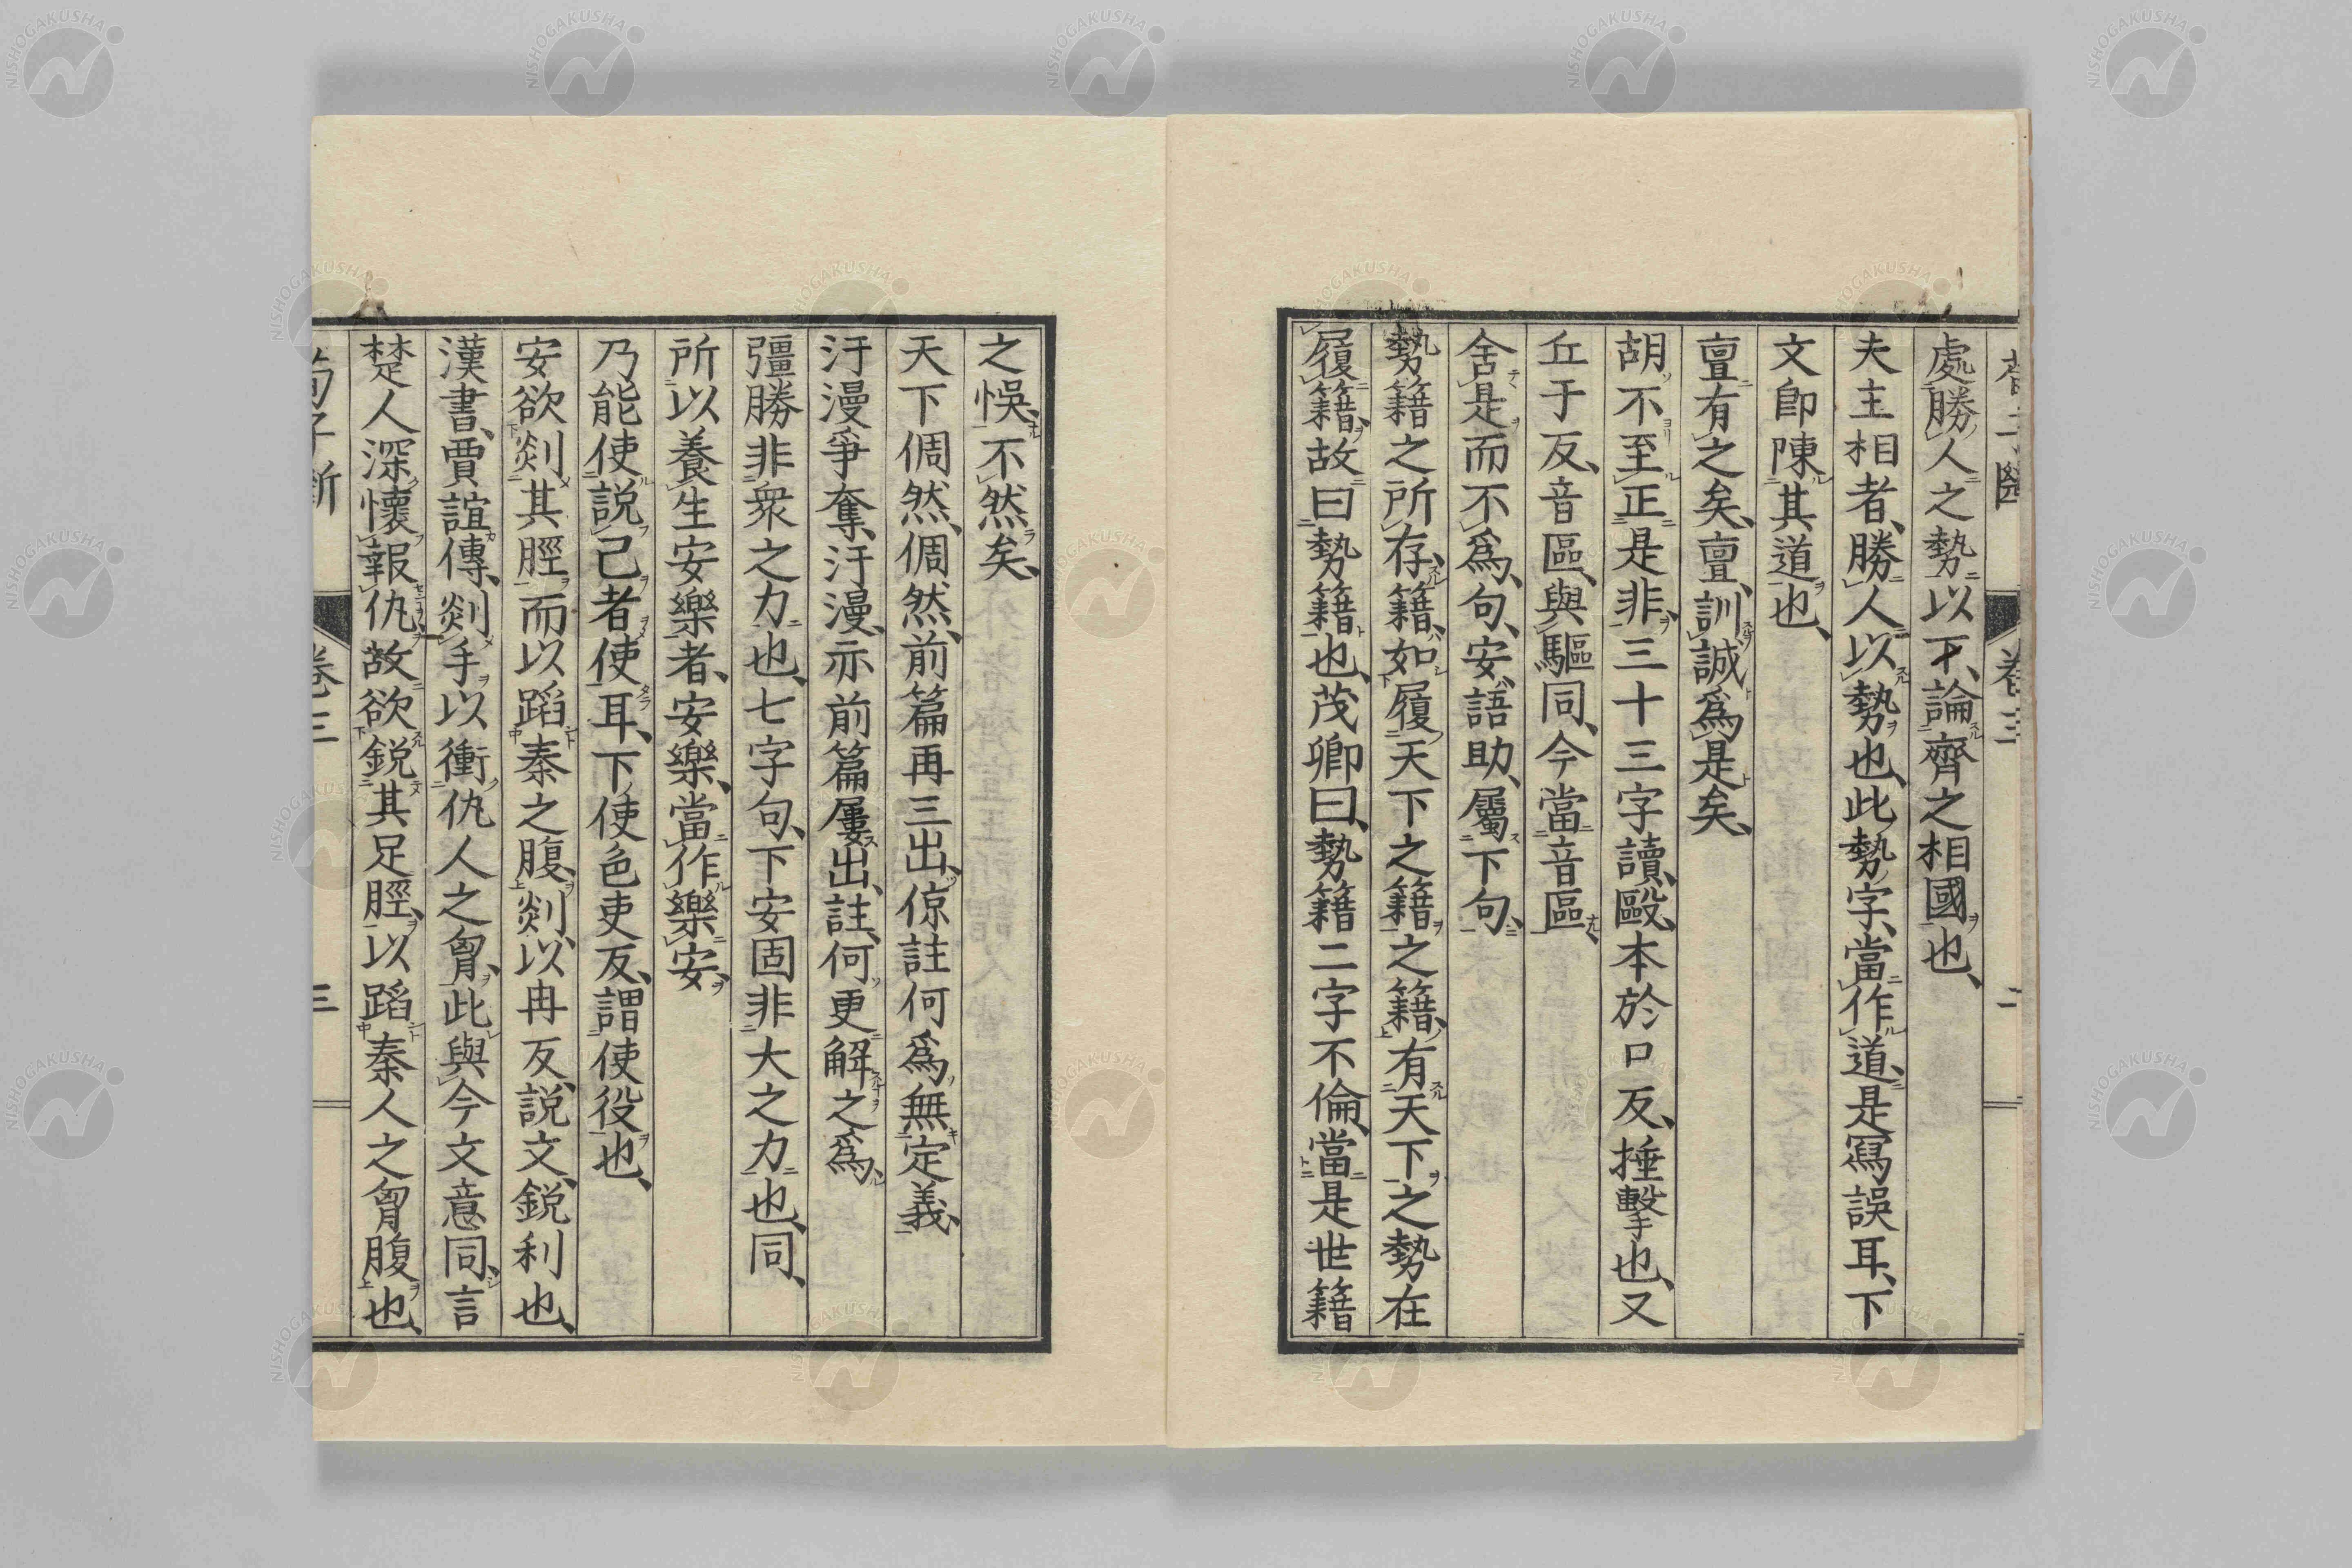 處勝人之勢以下、論齊之相國也、
夫主相者、勝人以勢也、此勢字、當作道、是寫誤耳、下
文卽陳其道也、
亶有之矣、亶、訓誠爲是矣、
胡不至正是非、三十三字讀、毆、本於口反、捶擊也、又
丘于反、音區、與驅同、今當音區、
舍是而不爲、句、安、語助、屬下句、
勢籍之所存、籍、如履天下之籍之籍、有天下之勢在
履籍、故曰勢籍也、茂卿曰、勢籍二字不倫、當是世籍
卷三
二
之悞、不然矣、
天下倜然、倜然、前篇再三出、倞註何爲無定義、
汙漫爭奪、汙漫、亦前篇屢出、註、何更解之爲、
彊勝非衆之力也、七字句、下安固非大之力也、同、
所以養生安樂者、安樂、當作樂安、
乃能使說己者使耳、下使色吏反、謂使役也、
安欲剡其脛而以蹈秦之腹、剡、以冉反、説文、鋭利也、
漢書、賈誼傳、剡手以衝仇人之胷、此與今文意同、言
楚人深懷報仇、故欲鋭其足脛、以蹈秦人之胷腹也、
卷三
三